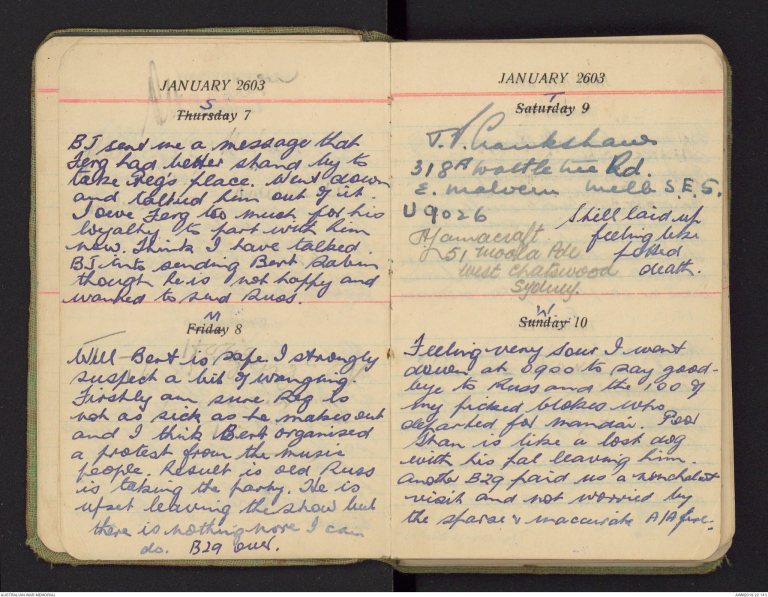 JANUARY 2603
S
Thursday 7
BJ sent me a message that
Ferg had better stand by to
take Reg's place. Went down
and talked him out of it.
I owe Ferg too much for his
loyalty to part with him
now. Think I have talked
BJ into sending Bert Rabin
though he is not happy and
wanted to send Russ.
M
Friday 8
Well - Bert is safe. I strongly
suspect a bit of wangling.
Firstly am sure Reg is
not as sick as he makes out
and I think Bert organised
a protest from the music
people. Result is old Russ
is taking the party. He is
upset leaving the show but
there is nothing more I can
do. B29 over.
JANUARY 2603
T
Saturday 9
Crankshaw
318A Wattletree Rd.
E. Malvern Melb S.E.5.
U9026
Still laid up
feeling like
death.
Mamacraft
51 Moola Pde
West Chatswood
Sydney.
W
Sunday 10
Feeling very sour I went
down at 0900 to say good-
bye to Russ and the 100 of
my picked blokes who
departed for Mandai. Poor
Fran is like a lost dog
with his pal leaving him.
Another B29 paid us a nonchalant
visit and not worried by
the sparse & inaccurate A/A fire.
AUSTRALIAN WAR MEMORIAL